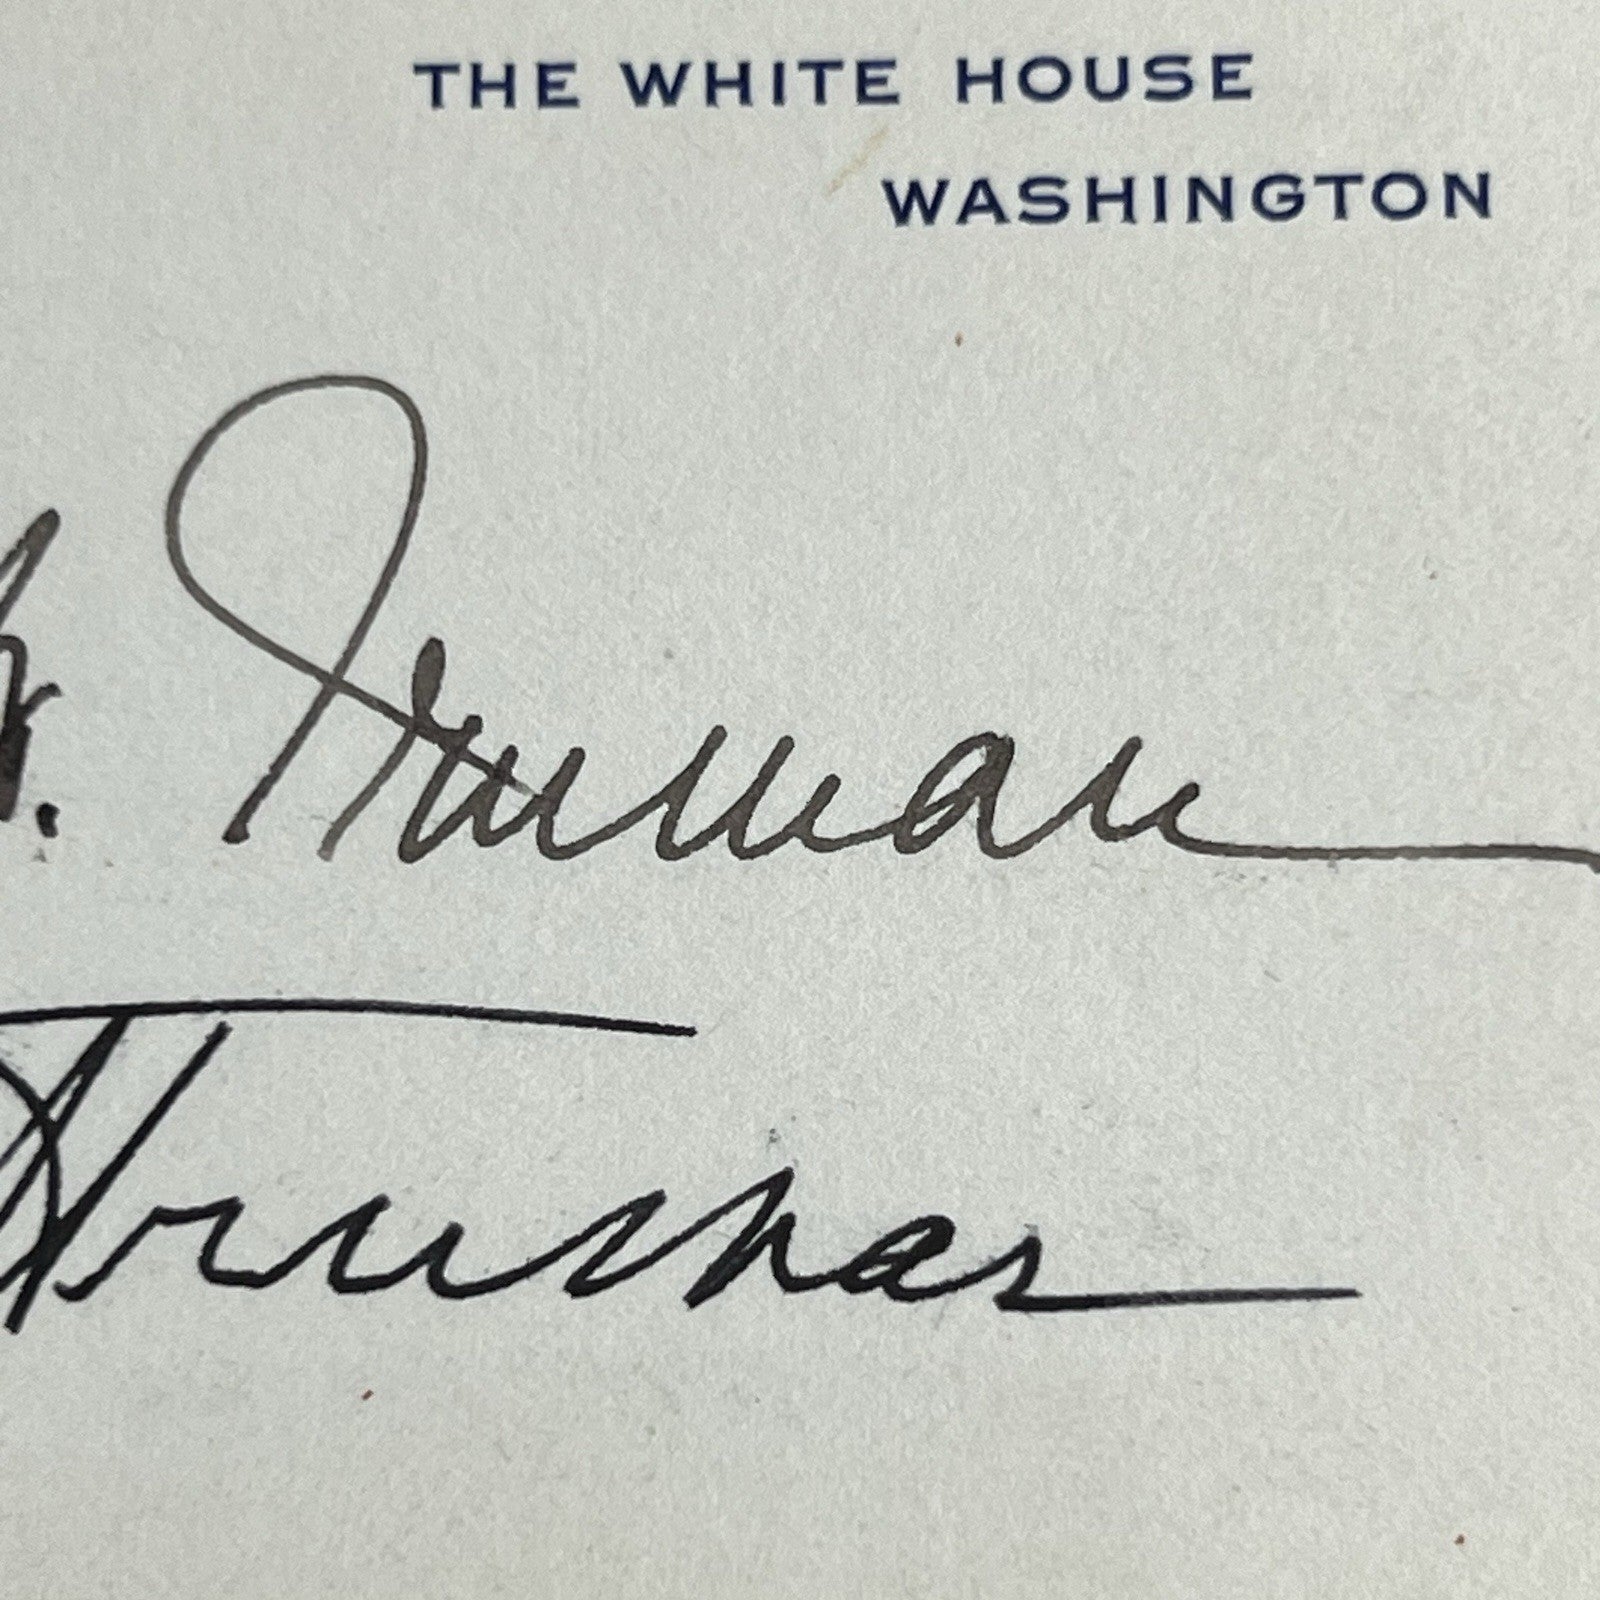 THE WHITE HOUSE
WASHINGTON
Truman
Truman